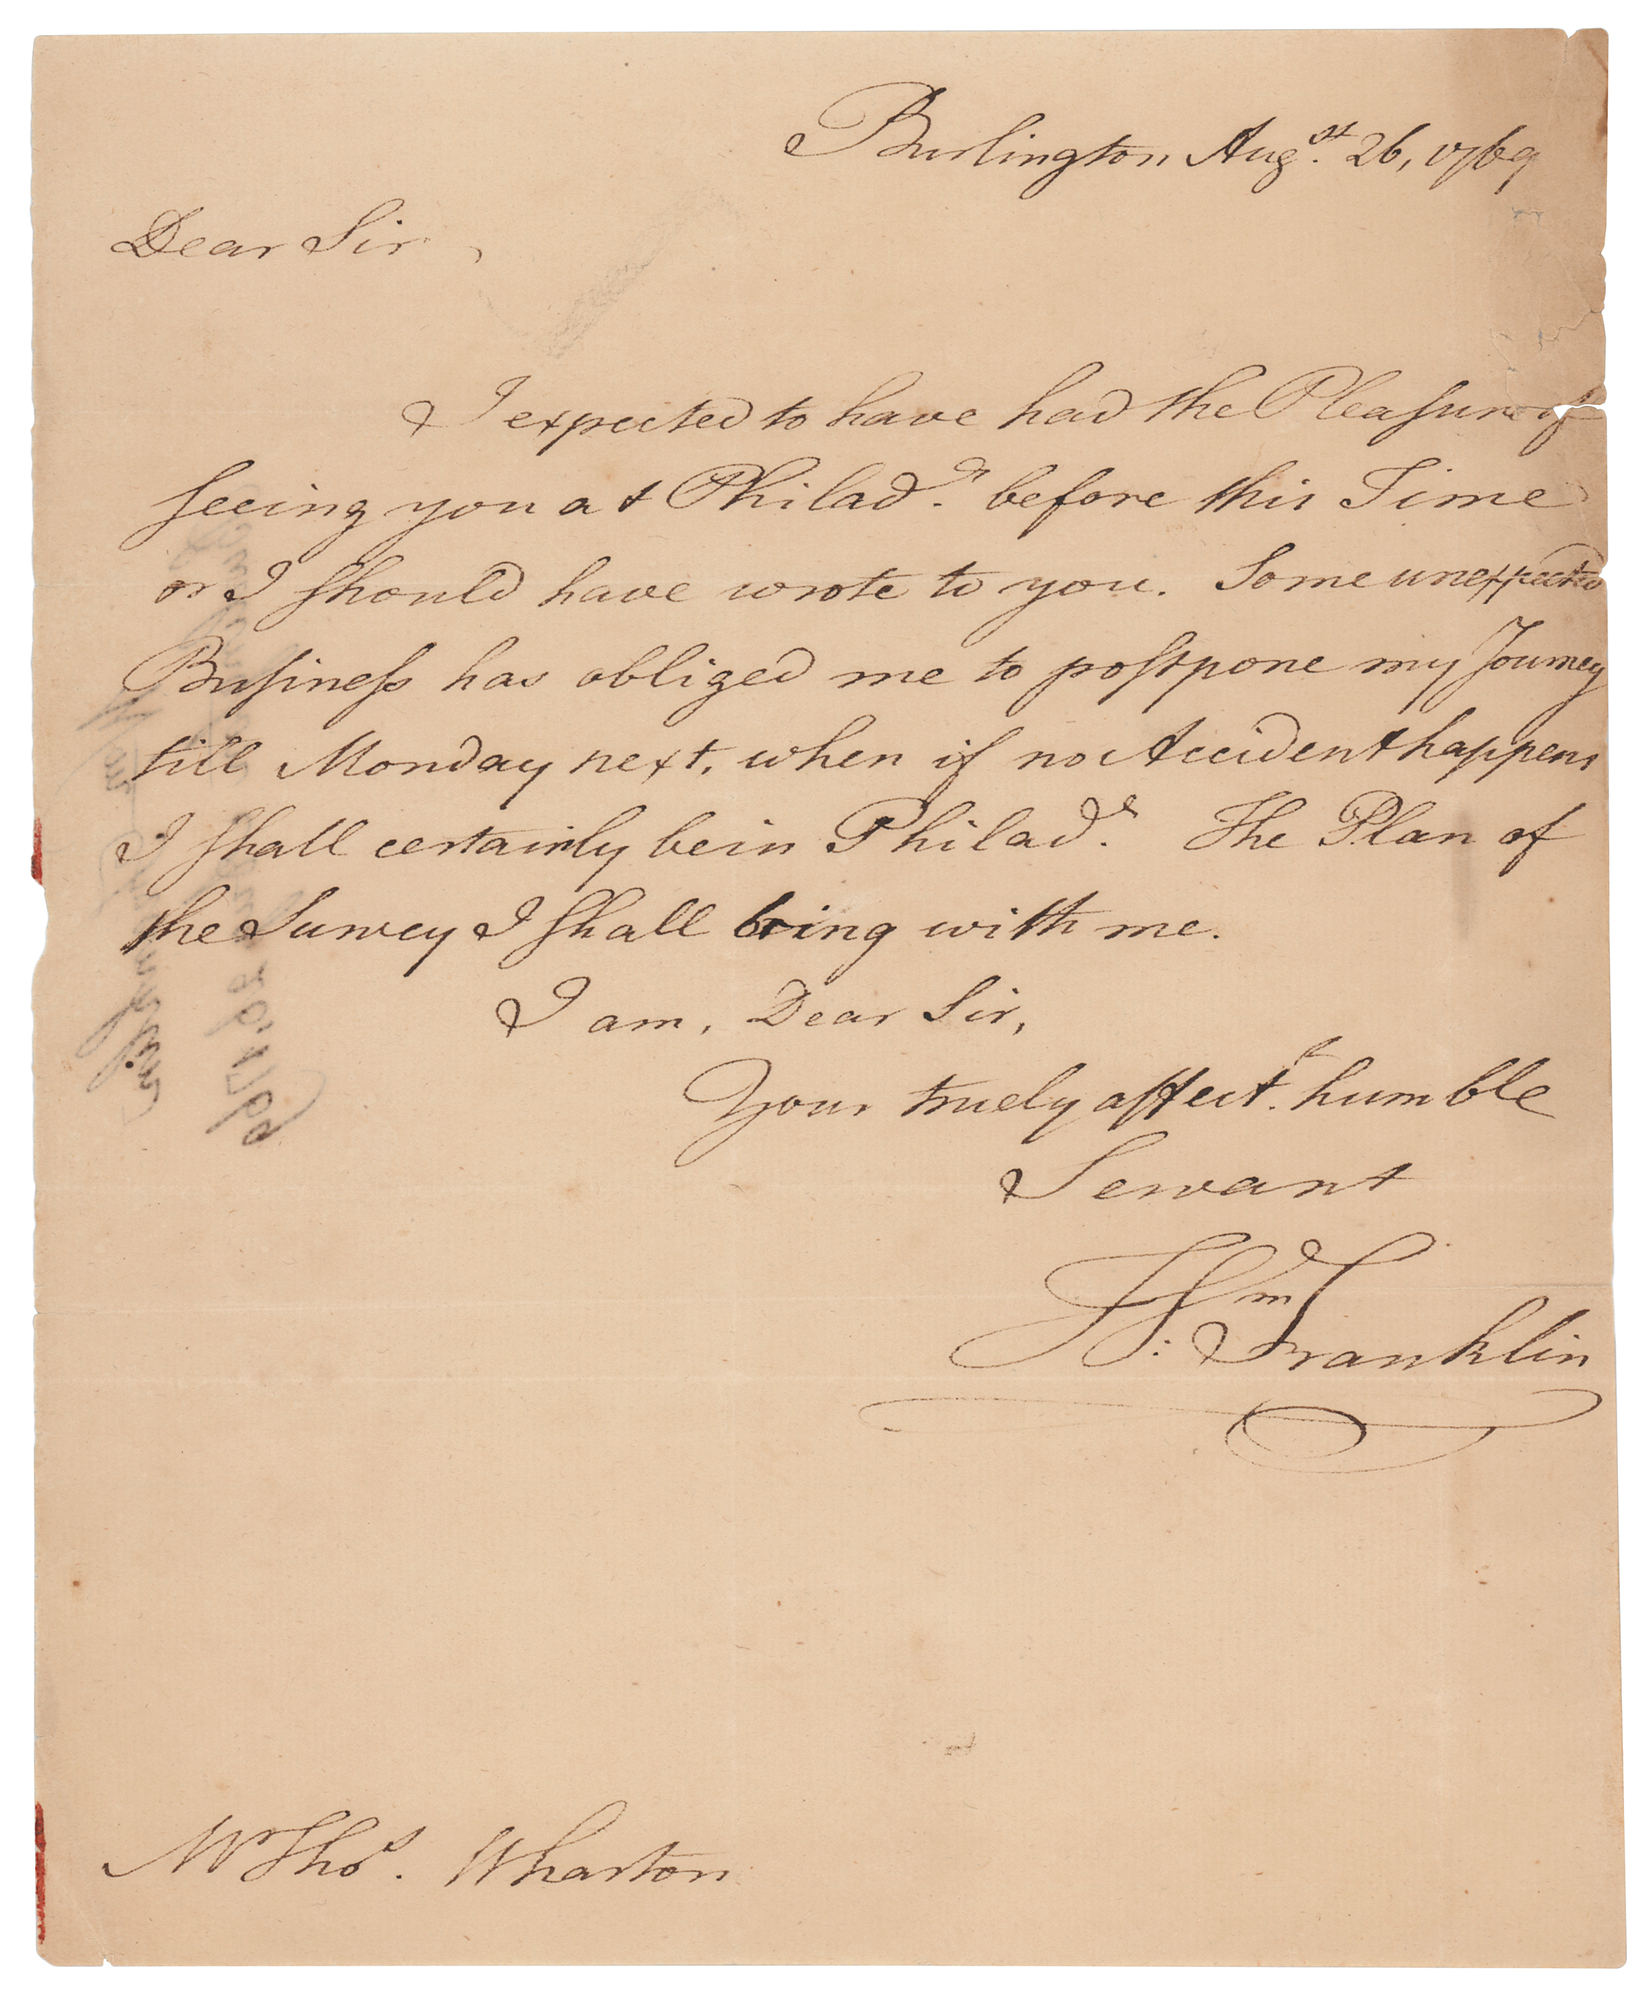 Burlington Augst. 26, 1769
Dear Sir,
I expected to have had the Pleasure of
seeing you at Philada. before this Time
or I should have wrote to you. Some unexpected
Business has obliged me to postpone my Journey
till Monday next, when if no Accident happens
I shall certainly be in Philada. The Plan of
the Survey I shall bring with me.
I am, Dear Sir,
Your truely affecte. humble
Servant
Wm: Franklin
Mr Thos. Wharton